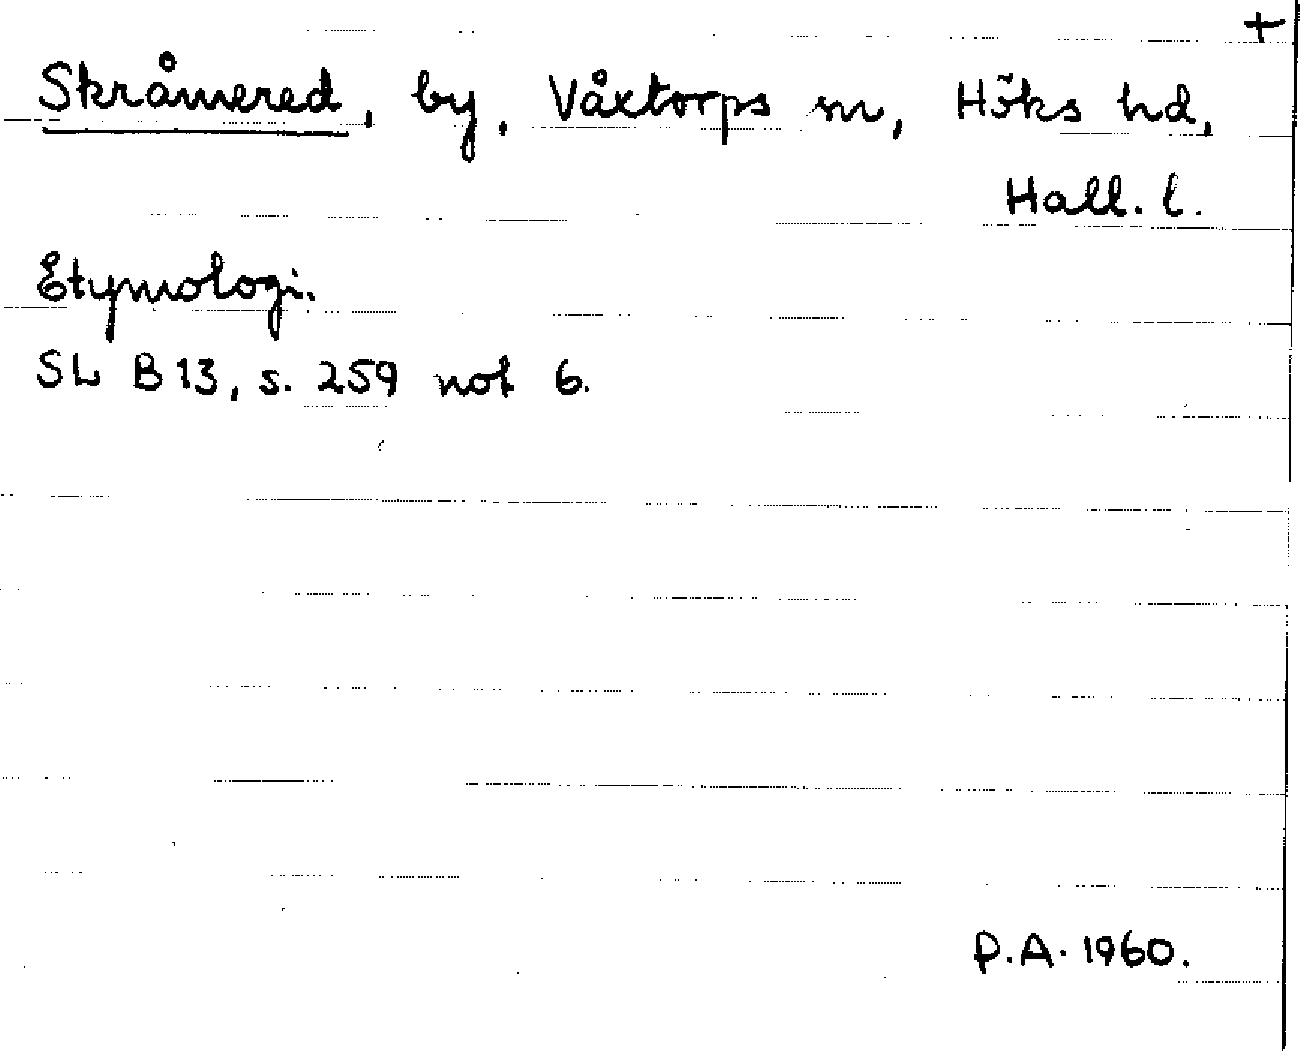 +
Skråmered, by, Våxtorps sn, Höks hd,
Hall. l.
Etymologi.
SL B 13, s. 259 not 6.
P.A. 1960.